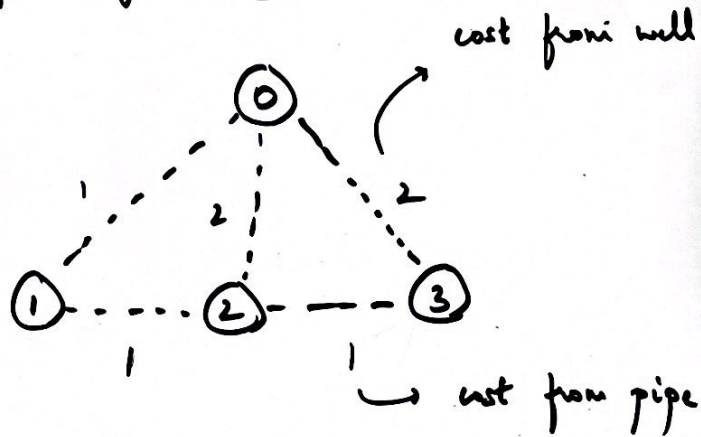 cost from well
0
1
2
2
1
2
3
1
1
cost from pipe